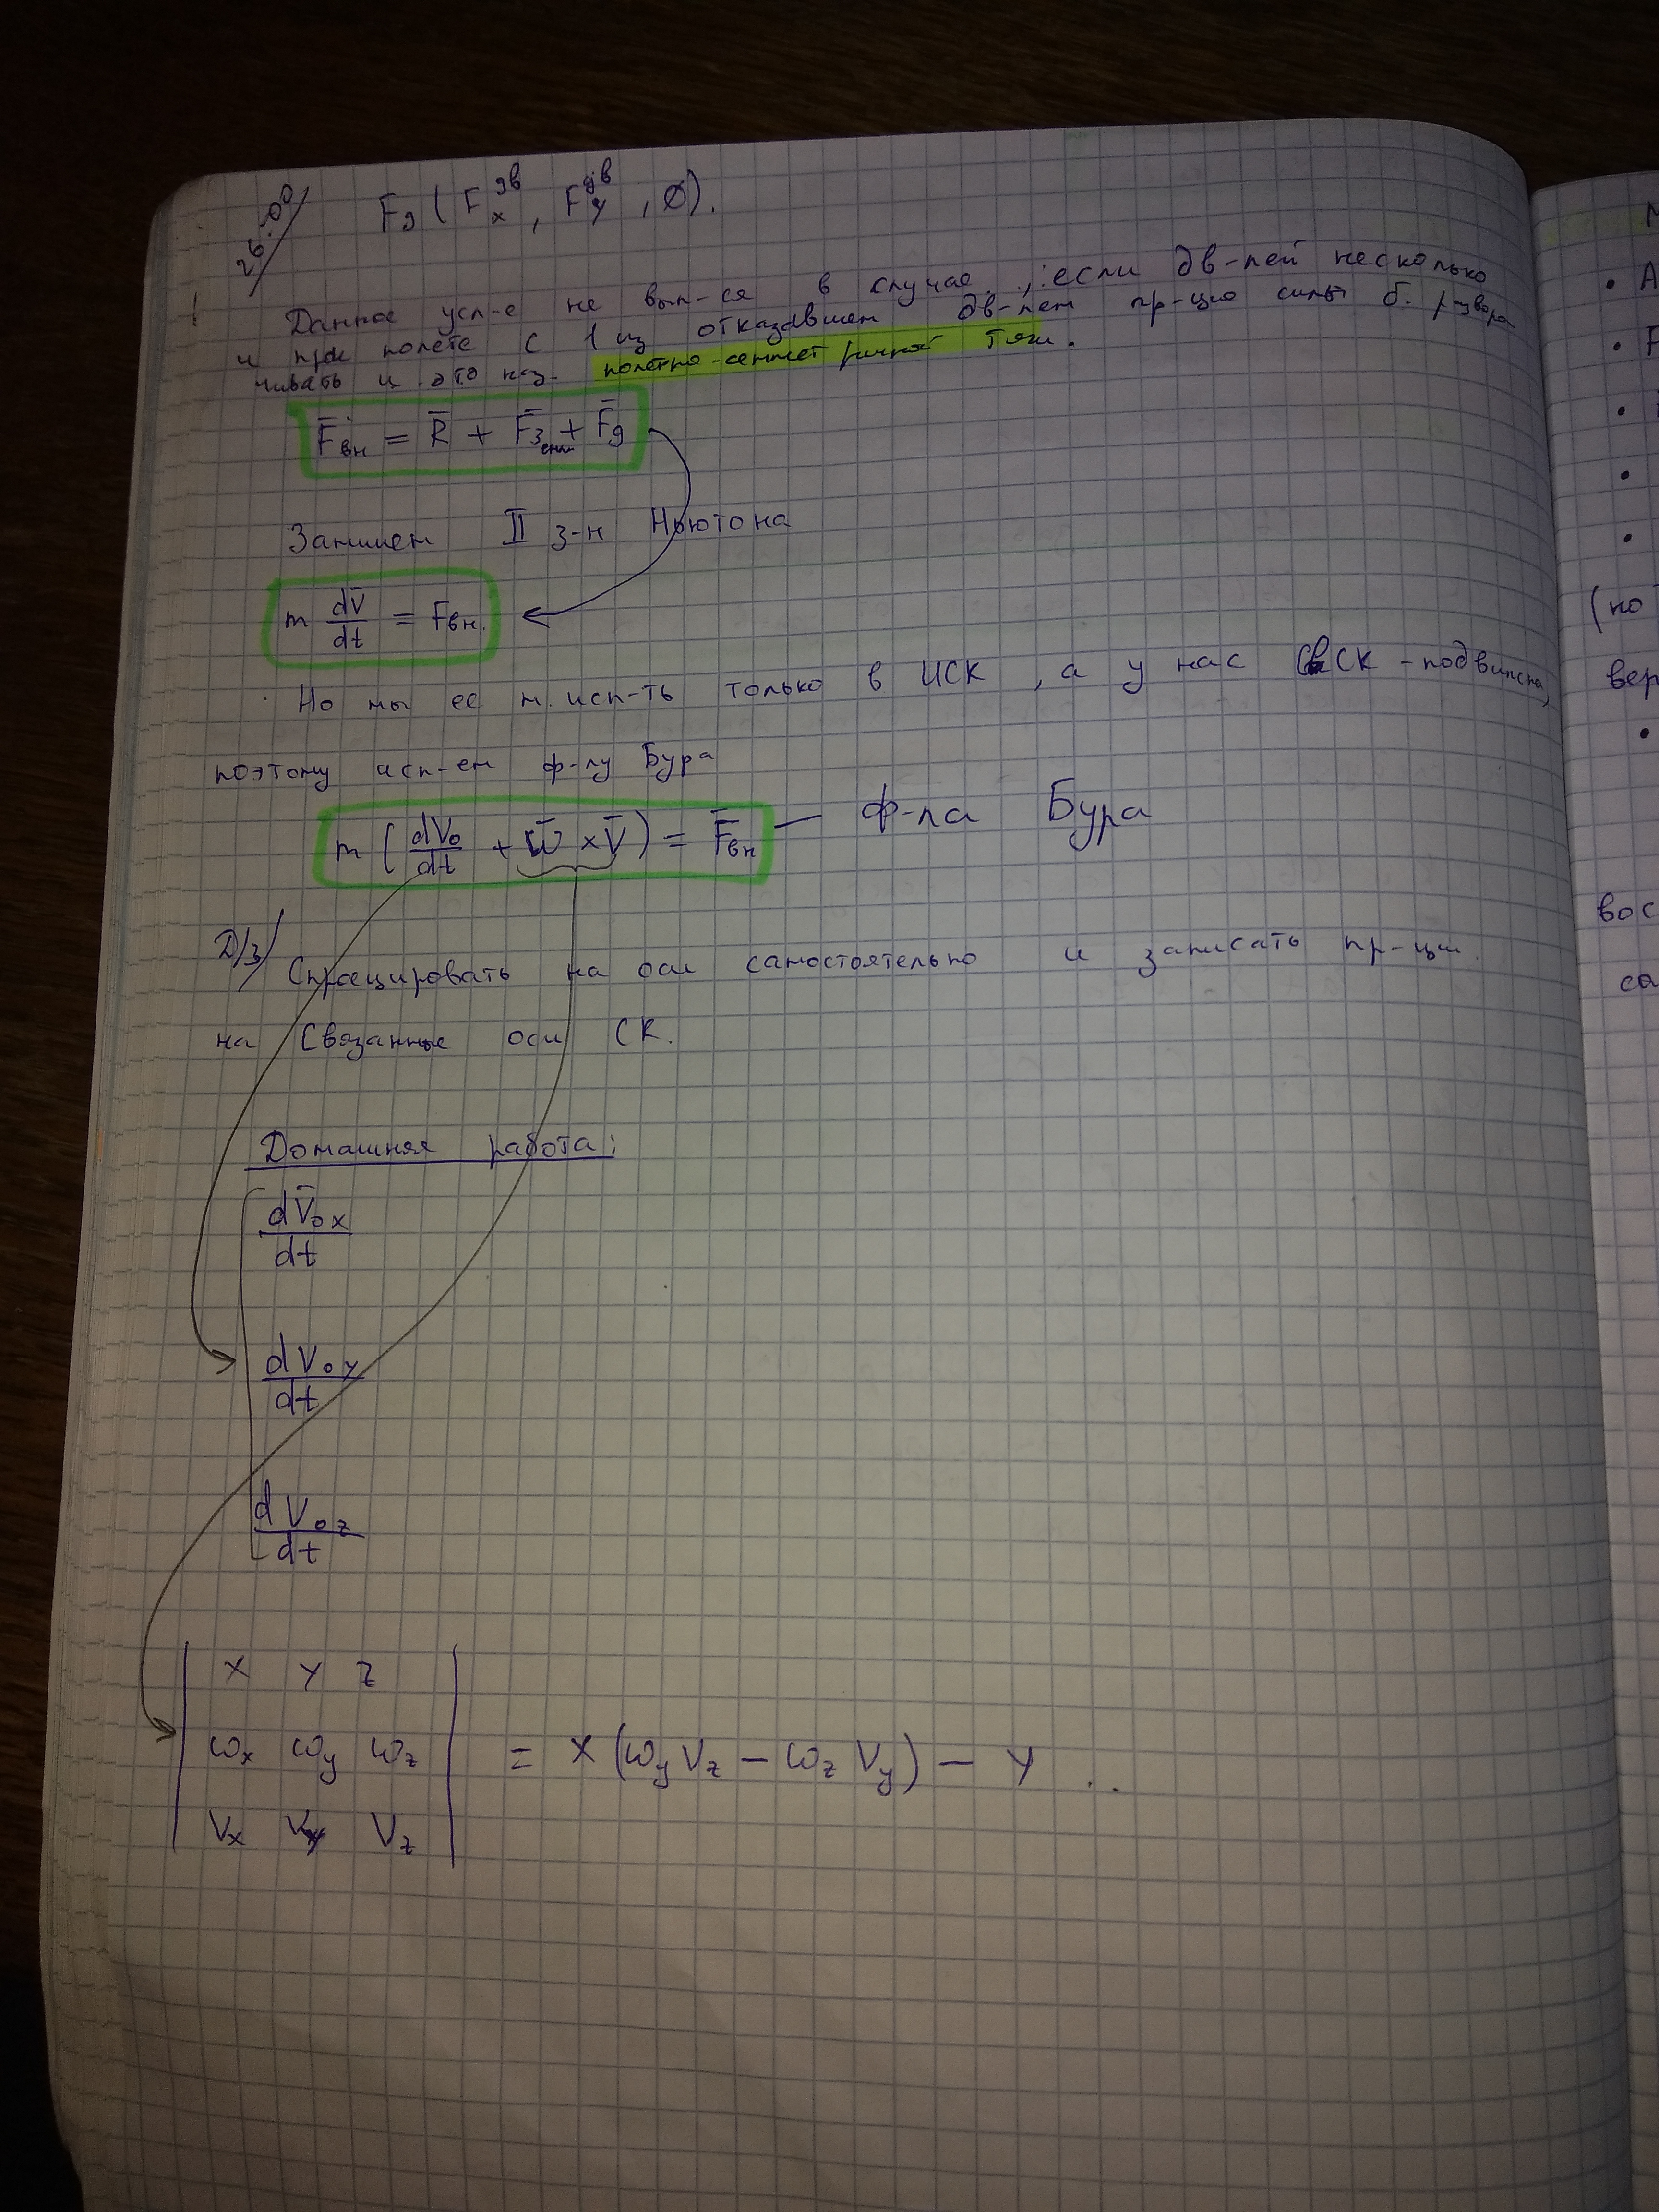 26.00
F₉ ( Fₓ^дв , F_y^дв , ∅ ).
Данное усл-е не вып-ся в случае, если дв-лей несколько
и при полете с 1 из отказавшем дв-лем пр-цию силы б. развора
чивать и это наз.
F̄вн = R̄ + F̄з + F̄g
Запишем II з-н Ньютона
m dV̄/dt = Fвн.
Но мы ее м. исп-ть только в ИСК, а у нас СвСК - подвижна,
поэтому исп-ем ф-лу Бура
m ( dV₀/dt + ω̄ × V̄ ) = F̄вн — ф-ла Бура
Д/з/ Спроецировать на оси самостоятельно и записать пр-ции
на Связанные оси СК.
Домашняя работа:
dV̄₀ₓ/dt
dV₀y/dt
dV₀z/dt
| x y z |
| ωx ωy ωz | = x (ωy Vz − ωz Vy) − y ..
| Vx Vy Vz |
M
• A
• F
(по
вер
вос
са